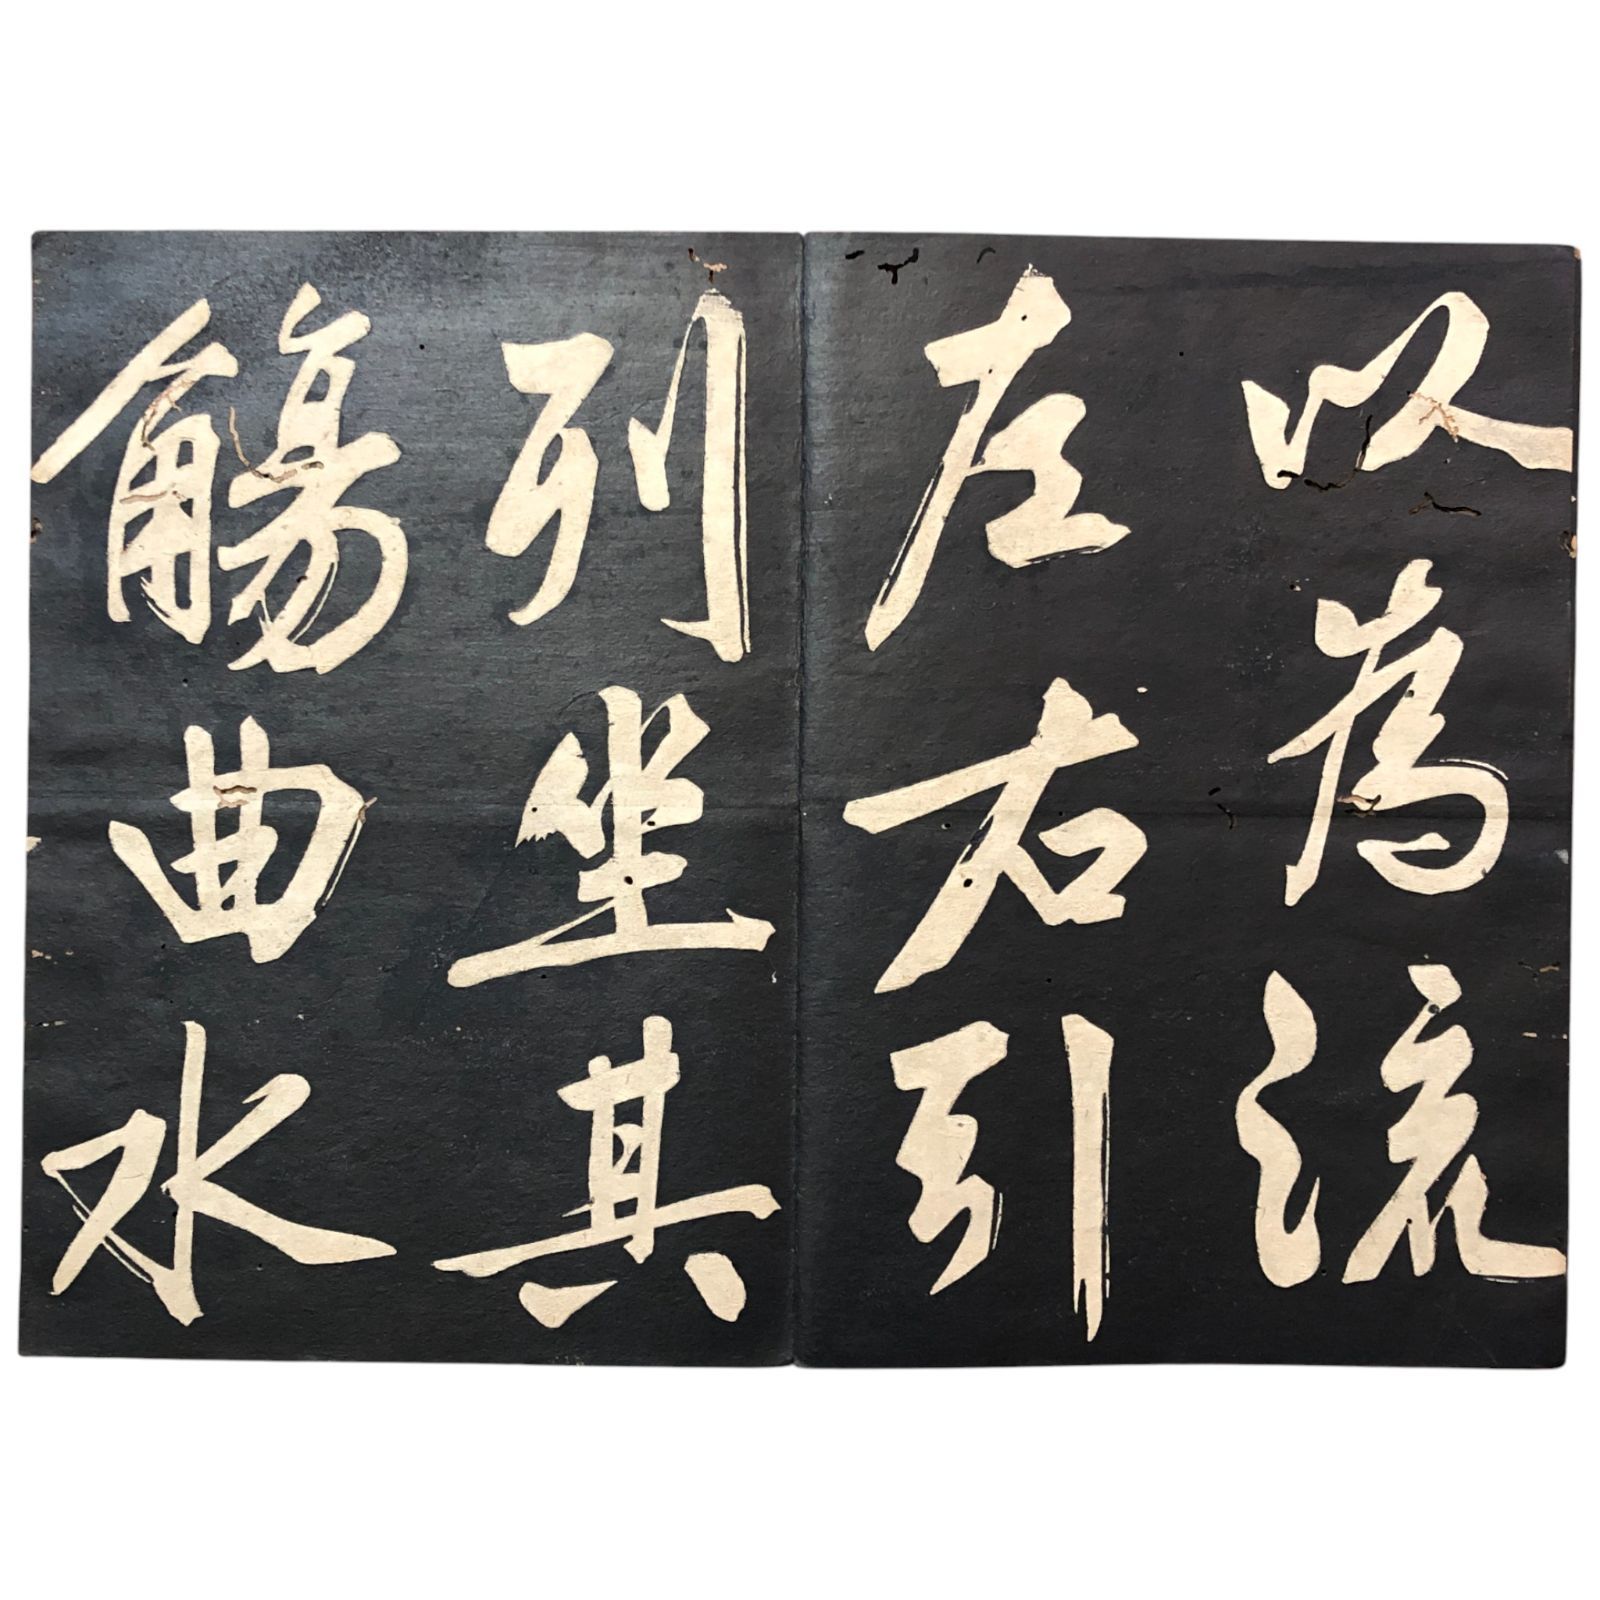 以為流
左右引
列坐其
觴曲水